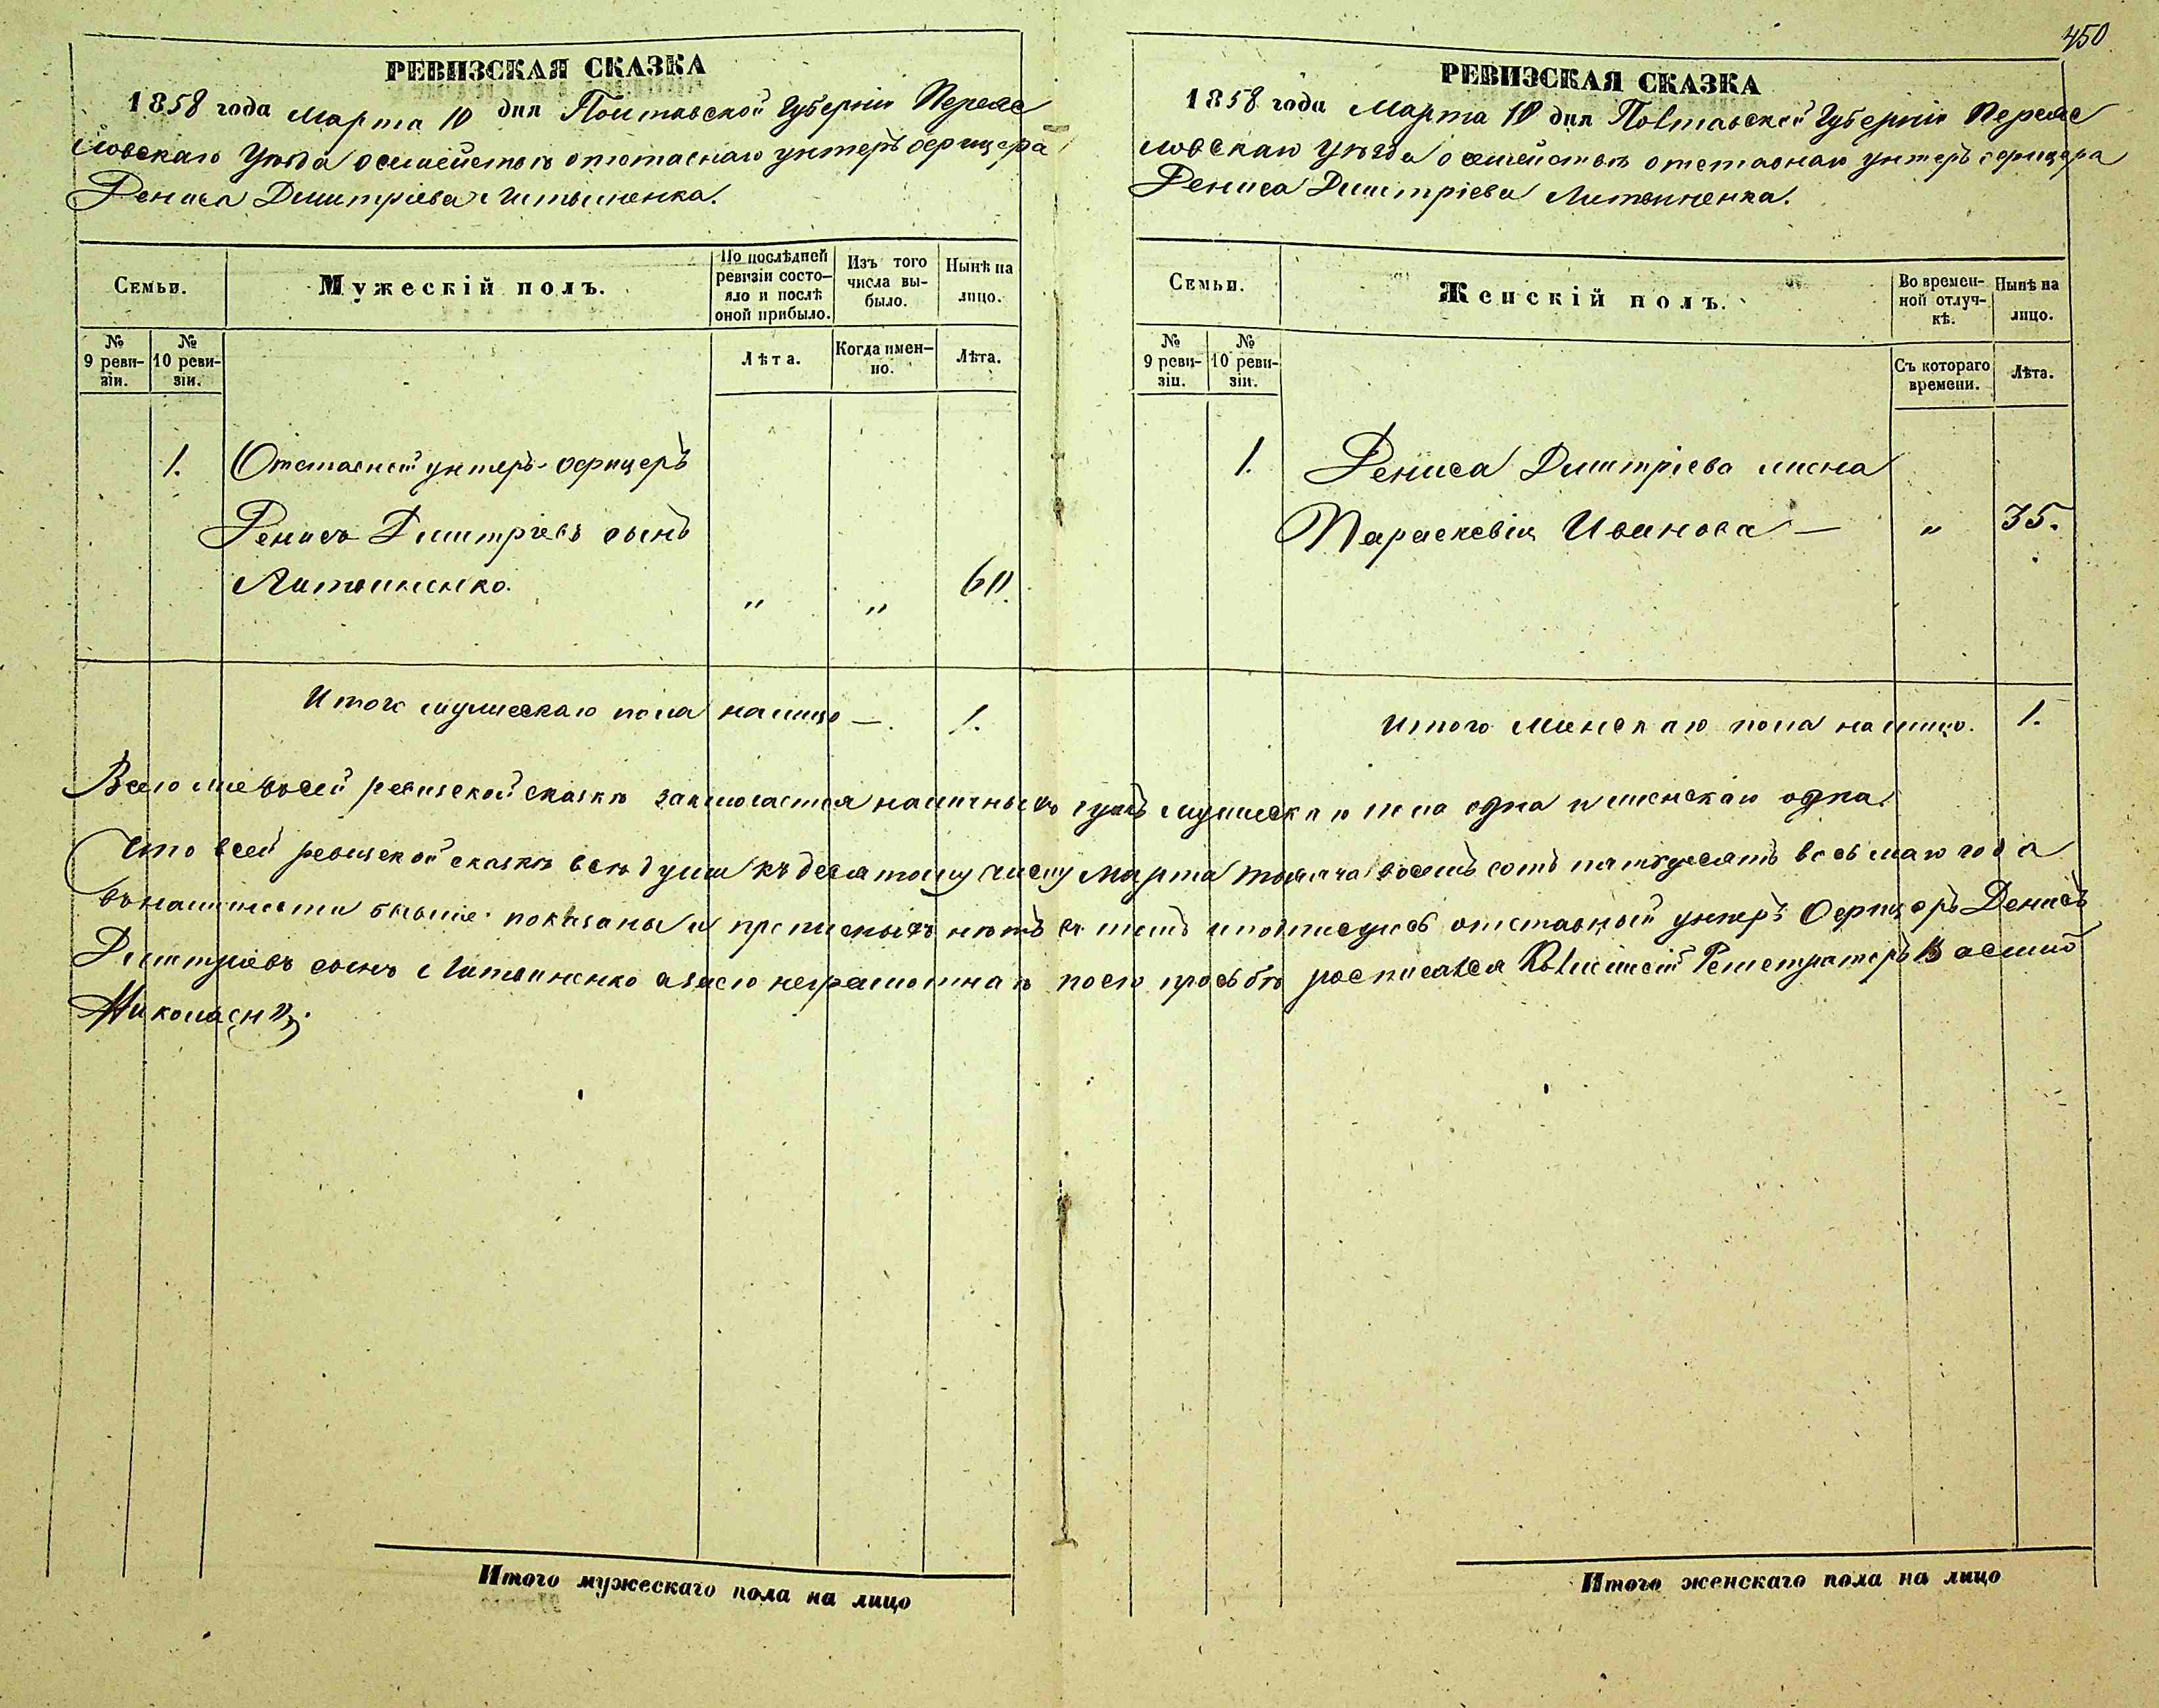 450
РЕВИЗСКАЯ СКАЗКА
1858 года Марта 10 дня Полтавской Губерніи Переяс
ловскаго Уѣзда о семействѣ отставнаго унтеръ офицера
Дениса Дмитріева Литвиненка.
Семьи.
Мужескій полъ.
По послѣдней ревизіи состо-
яло и послѣ оной прибыло.
Изъ того числа вы-
было.
Нынѣ на лицо.
№ 9 реви-
зіи.
№ 10 реви-
зіи.
Лѣта.
Когда имен-
но.
Лѣта.
1. Отставной унтеръ-офицеръ
Денисъ Дмитріевъ сынъ
Литвиненко. " " 60.
Итого мужескаго пола налицо —. 1.
РЕВИЗСКАЯ СКАЗКА
1858 года Марта 10 дня Полтавской Губерніи Переяс
ловскаго Уѣзда о семействѣ отставнаго унтеръ офицера
Дениса Дмитріева Литвиненка.
Семьи.
Женскій полъ.
Во времен-
ной отлуч-
кѣ.
Нынѣ на лицо.
№ 9 реви-
зіи.
№ 10 реви-
зіи.
Съ котораго времени.
Лѣта.
1. Дениса Дмитріева жена
Параскевія Иванова — " 35.
Итого женскаго пола налицо. 1.
Всего въ сей ревизской сказкѣ заключается наличныхъ душъ мужескаго пола одна и женскаго одна.
Что в сей ревизской сказкѣ всѣ души къ десятому числу Марта тысяча восемь сотъ пятьдесятъ восьмаго года
въ наличности бывшіе показаны и прописныхъ нѣтъ въ томъ и подписуюсь отставный унтеръ Офицеръ Денисъ
Дмитріевъ сынъ Литвиненко а за его неграмотнаго по его просьбѣ росписался Колежскій Регистраторъ Василий
Николаенко.
Итого мужескаго пола на лицо
Итого женскаго пола на лицо